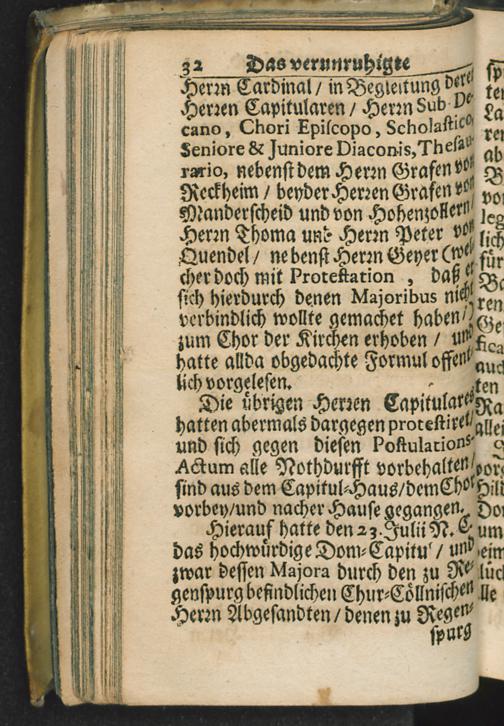 32 Das verunruhigte
Herrn Cardinal / in Begleitung derer
Herren Capitularen / Herrn Sub-De-
cano, Chori Episcopo, Scholastico,
Seniore & Juniore Diaconis, Thesau-
rario, nebenst dem Herrn Grafen von
Reckheim / beyder Herren Grafen von
Manderscheid und von Hohenzollern/
Herrn Thoma und Herrn Peter von
Quendel / nebenst Herrn Geyer (wel-
cher doch mit Protestation, daß er
sich hierdurch denen Majoribus nicht
verbindlich wollte gemachet haben/)
zum Chor der Kirchen erhoben / und
hatte allda obgedachte Formul offent-
lich vorgelesen.
Die übrigen Herren Capitulares
hatten abermals dargegen protestiret/
und sich gegen diesen Postulations-
Actum alle Nothdurfft vorbehalten/
sind aus dem Capitul-Haus/dem Chor
vorbey/und nacher Hause gegangen.
Hierauf hatte den 23. Julii N. C.
das hochwürdige Dom-Capitul / und
zwar dessen Majora durch den zu Re-
genspurg befindlichen Chur-Cöllnischen
Herrn Abgesandten / denen zu Regen-
spurg